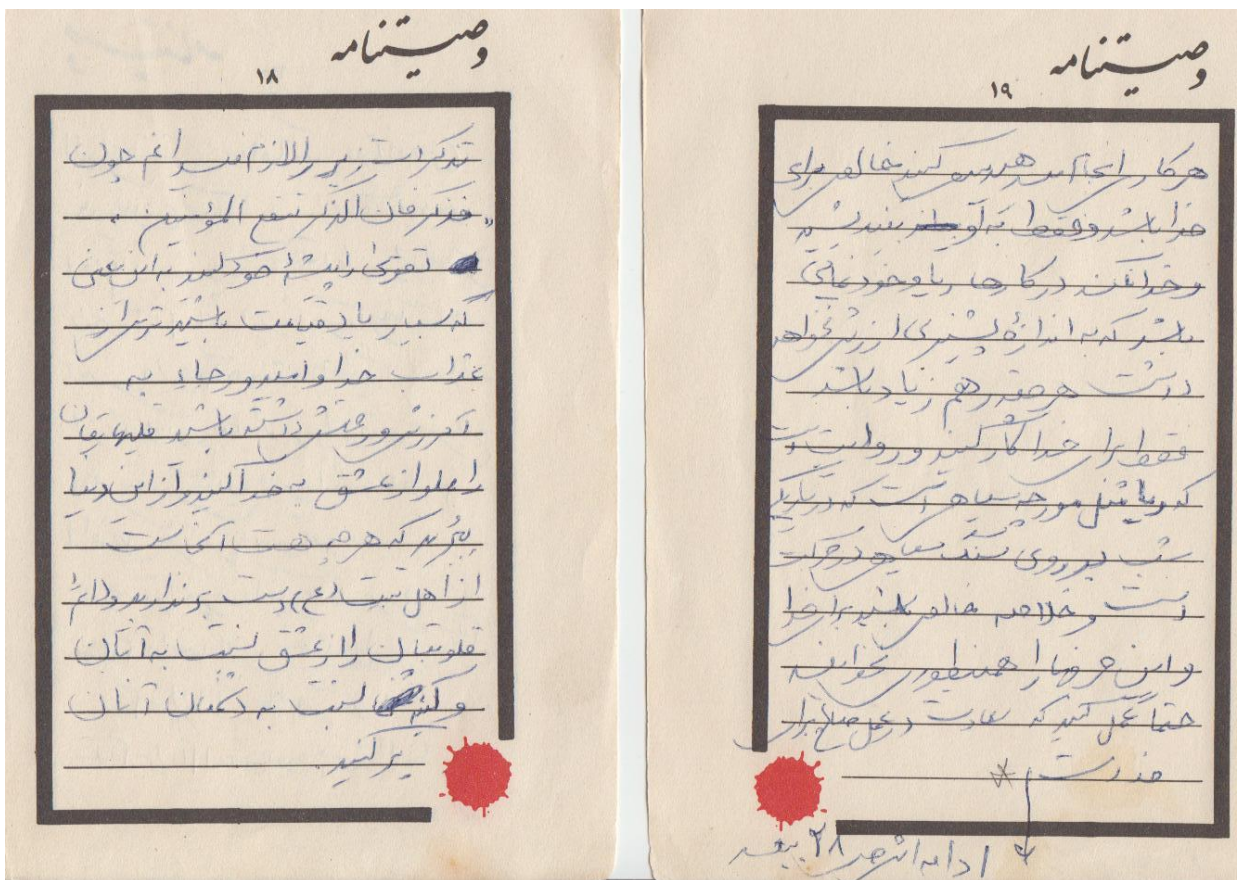 وصیتنامه
۱۸
تذکرات زیر را لازم میدانم چون
«فذکر فان الذکر تنفع المؤمنین»
تقوی را پیشهٔ خود کنید به این معنی
که بسیار یاد قیامت باشید ترس از
عذاب خدا و امید و رجاء به
آمرزش ورحمتش داشته باشید قلبهایتان
را مملو از عشق به خدا کنید و از این دنیا
ببُرید که هر چه هست آنجاست
از اهل بیت (ع) دست برندارید و دائم
قلوبتان را از عشق نسبت به آنان
و کینه نسبت به دشمنان آنان
پر کنید.
وصیتنامه
۱۹
هر کاری انجام میدهید سعی کنید خالص برای
خدا باشد و فقط به او بیندیشید
و خدا نکند در کارها ریا و خودنمائی
باشد که به اندازهٔ پشیزی ارزش نخواهد
داشت هر چقدر هم زیاد باشد
فقط برای خدا کار کنید و روایت است
که ریا مثل مورچه سیاهی است که در تاریکی
شب بر روی سنگ سیاهی در حرکت
است و خلاصه خالص باشید برای خدا
و این حرفها را همینطوری نخوانید
حتما عمل کنید که سعادت در عمل صالح برای
خداست
ادامه اش ص ۲۸ بعد